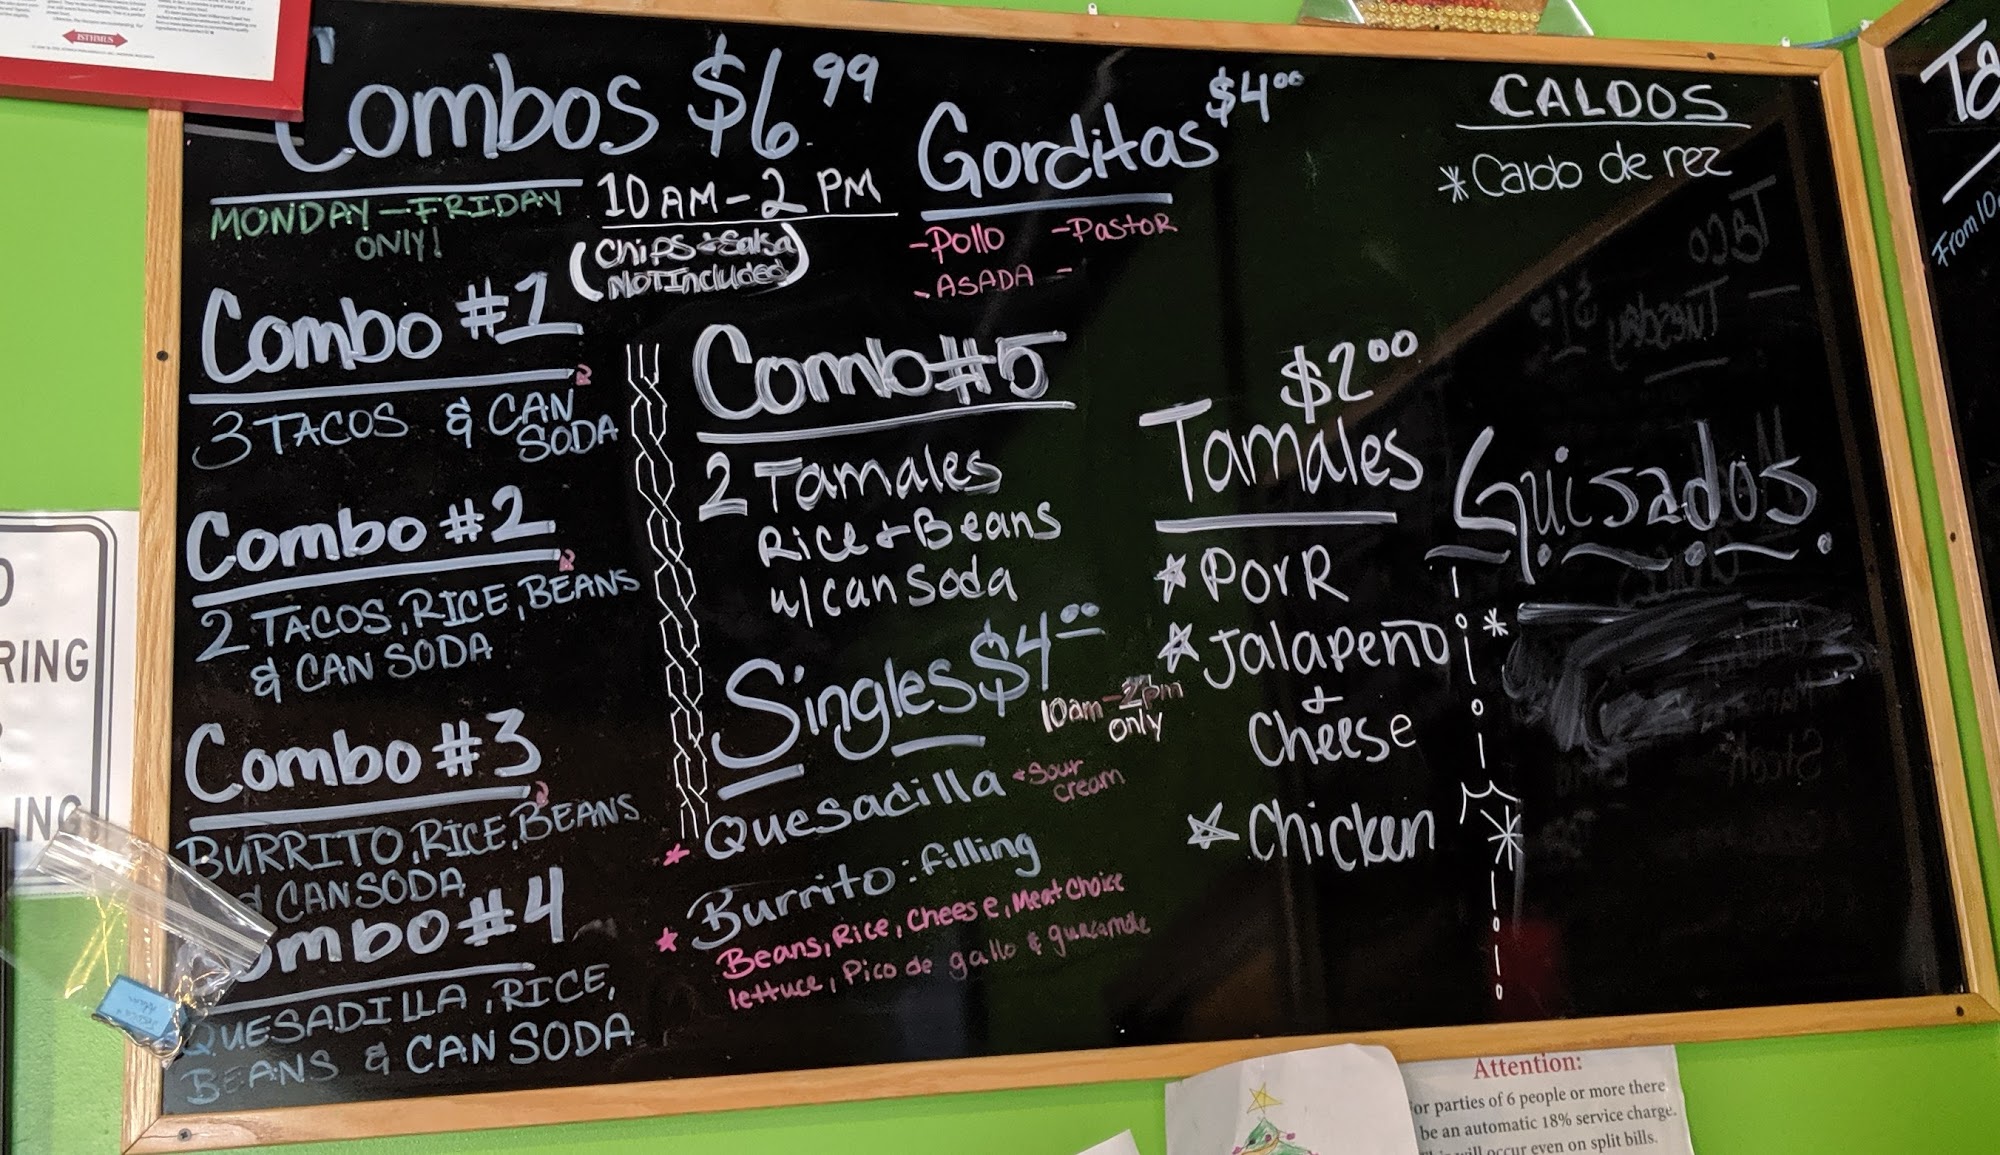 ISTHMUS
Combos $6.99
MONDAY - FRIDAY
ONLY!
10 AM - 2 PM
(Chips & Salsa
NOT Included)
Combo #1
3 TACOS & CAN
SODA
Combo #2
2 TACOS, RICE, BEANS
& CAN SODA
Combo #3
BURRITO, RICE, BEANS
& CAN SODA
Combo #4
QUESADILLA, RICE,
BEANS & CAN SODA
Gorditas $4.00
- Pollo - Pastor
- ASADA -
Combo #5
2 Tamales
Rice & Beans
w/can Soda
Singles $4.00
10am - 2pm
only
* Quesadilla + sour
cream
* Burrito: filling
Beans, Rice, Cheese, Meat Choice
lettuce, Pico de gallo & guacamole
$2.00
Tamales
* PorR
* Jalapeño
+
Cheese
* Chicken
CALDOS
* Caldo de rez
Guisados
*
*
From 10
RING
ING
Taco
Tuesday $1
Attention:
or parties of 6 people or more there
be an automatic 18% service charge.
will occur even on split bills.